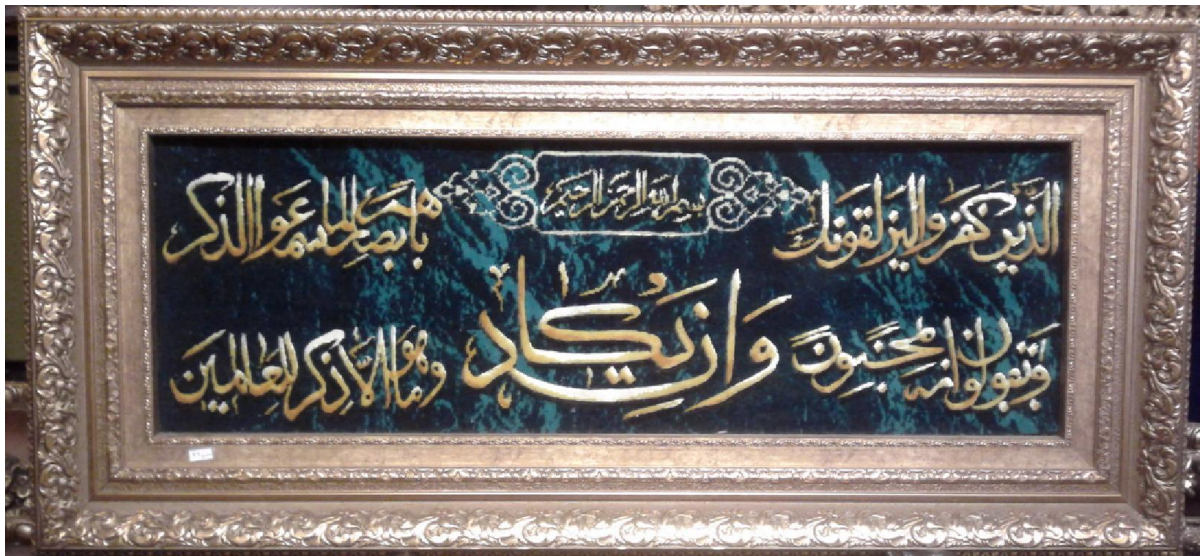 بسم الله الرحمن الرحيم
وان يكاد
الذين كفروا ليزلقونك
بابصارهم لما سمعوا الذكر
ويقولون انه لمجنون
وما هو الا ذكر للعالمين